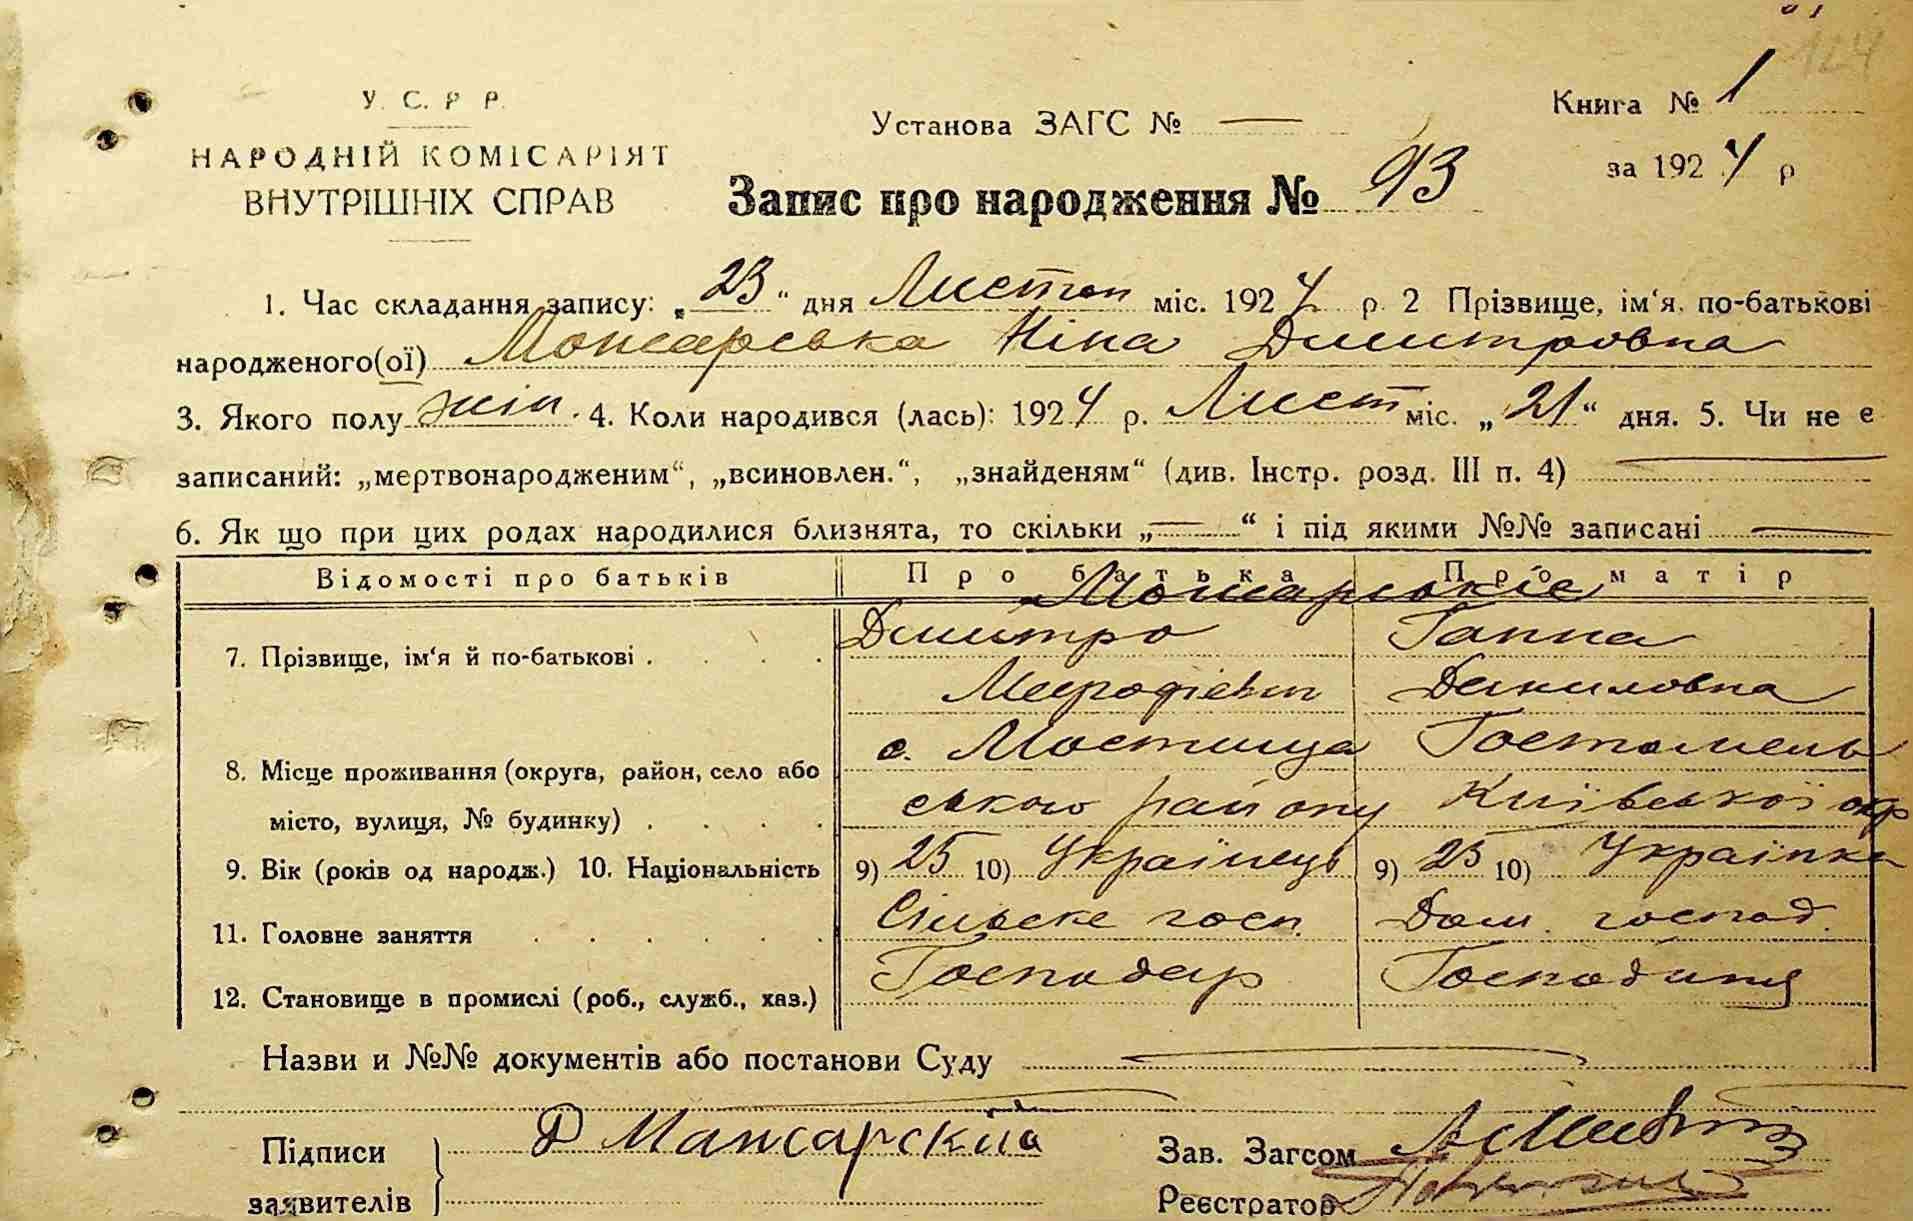 124
У. С. Р Р.
Установа ЗАГС № —
Книга № 1
НАРОДНІЙ КОМІСАРІЯТ
ВНУТРІШНІХ СПРАВ
за 1924 р
Запис про народження № 93
1. Час складання запису: „23“ дня Листоп міс. 1924 р. 2 Прізвище, ім‘я, по-батькові
народженого(ої) Можарська Ніна Дмитровна
3. Якого полу жін. 4. Коли народився (лась): 1924 р. Лист міс. „21“ дня. 5. Чи не є
записаний: „мертвонародженим“, „всиновлен.“, „знайденям“ (див. Інстр. розд. III п. 4) —
6. Як що при цих родах народилися близнята, то скільки „—“ і під якими №№ записані —
Відомості про батьків Про батька Про матір
Можарські
7. Прізвище, ім‘я й по-батькові . . . . Дмитро Ганна
Даниловна
8. Місце проживання (округа, район, село або с. Мостища Гостомель
місто, вулиця, № будинку) . . . . ського району Київської окр
9. Вік (років од народж.) 10. Національність 9) 25 10) Українець 9) 25 10) Українка
11. Головне заняття . . . . . . Сільске госп. Дом. господ.
12. Становище в промислі (роб., служб., хаз.) Господар Господиня
Назви и №№ документів або постанови Суду —
Підписи
заявителів
Д Мажарский
Зав. Загсом
Реєстратор